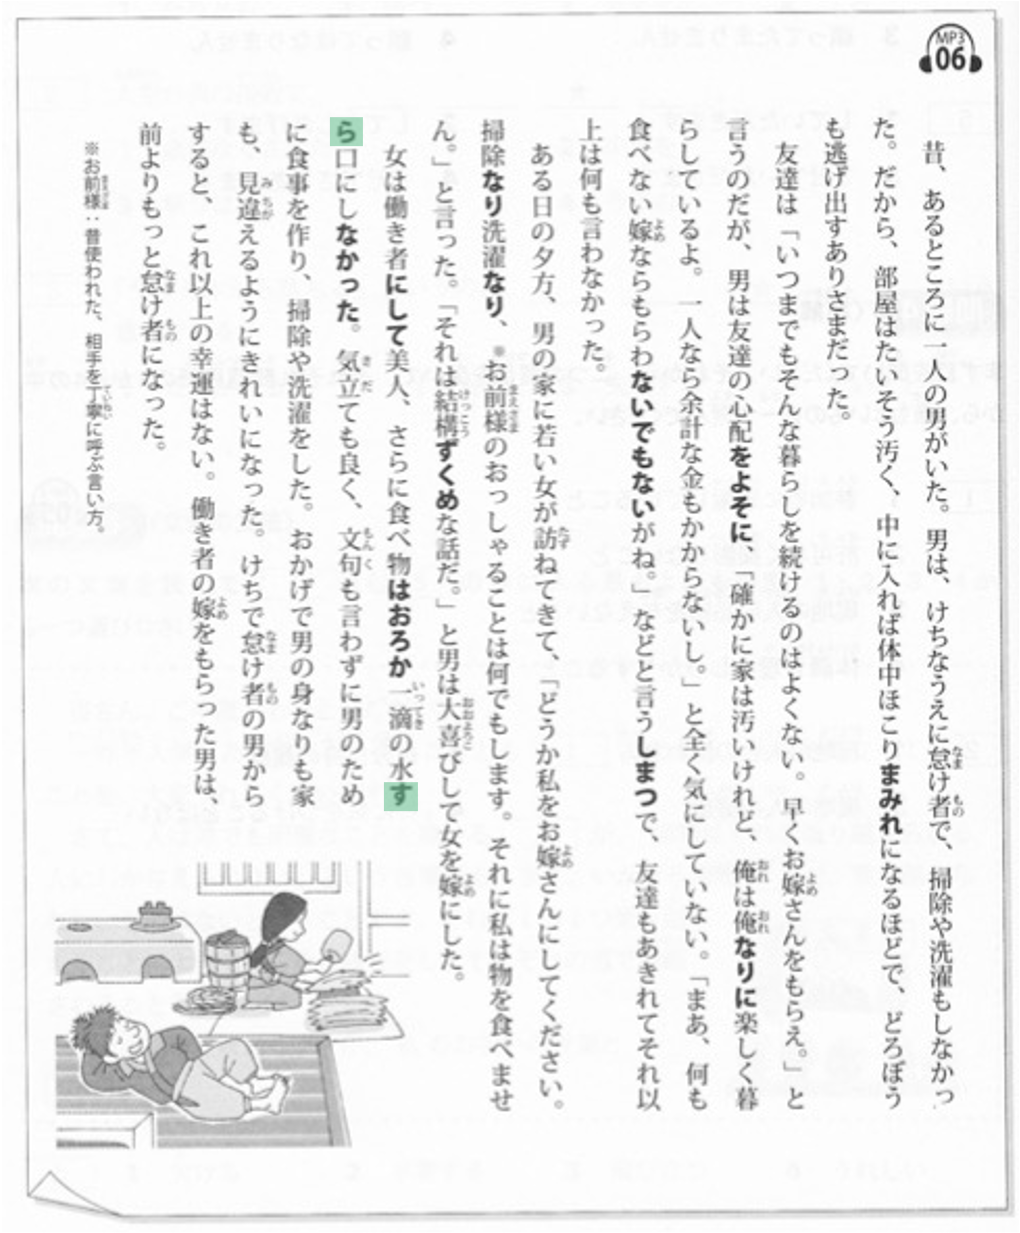 MP3
06
昔、あるところに一人の男がいた。男は、けちなうえに怠け者で、掃除や洗濯もしなかっ
た。だから、部屋はたいそう汚く、中に入れば体中ほこりまみれになるほどで、どろぼう
も逃げ出すありさまだった。
友達は「いつまでもそんな暮らしを続けるのはよくない。早くお嫁さんをもらえ。」と
言うのだが、男は友達の心配をよそに、「確かに家は汚いけれど、俺は俺なりに楽しく暮
らしているよ。一人なら余計な金もかからないし。」と全く気にしていない。「まあ、何も
食べない嫁ならもらわないでもないがね。」などと言うしまつで、友達もあきれてそれ以
上は何も言わなかった。
ある日の夕方、男の家に若い女が訪ねてきて、「どうか私をお嫁さんにしてください。
掃除なり洗濯なり、※お前様のおっしゃることは何でもします。それに私は物を食べませ
ん。」と言った。「それは結構ずくめな話だ。」と男は大喜びして女を嫁にした。
女は働き者にして美人、さらに食べ物はおろか一滴の水す
ら口にしなかった。気立ても良く、文句も言わずに男のため
に食事を作り、掃除や洗濯をした。おかげで男の身なりも家
も、見違えるようにきれいになった。けちで怠け者の男から
すると、これ以上の幸運はない。働き者の嫁をもらった男は、
前よりもっと怠け者になった。
※お前様：昔使われた、相手を丁寧に呼ぶ言い方。